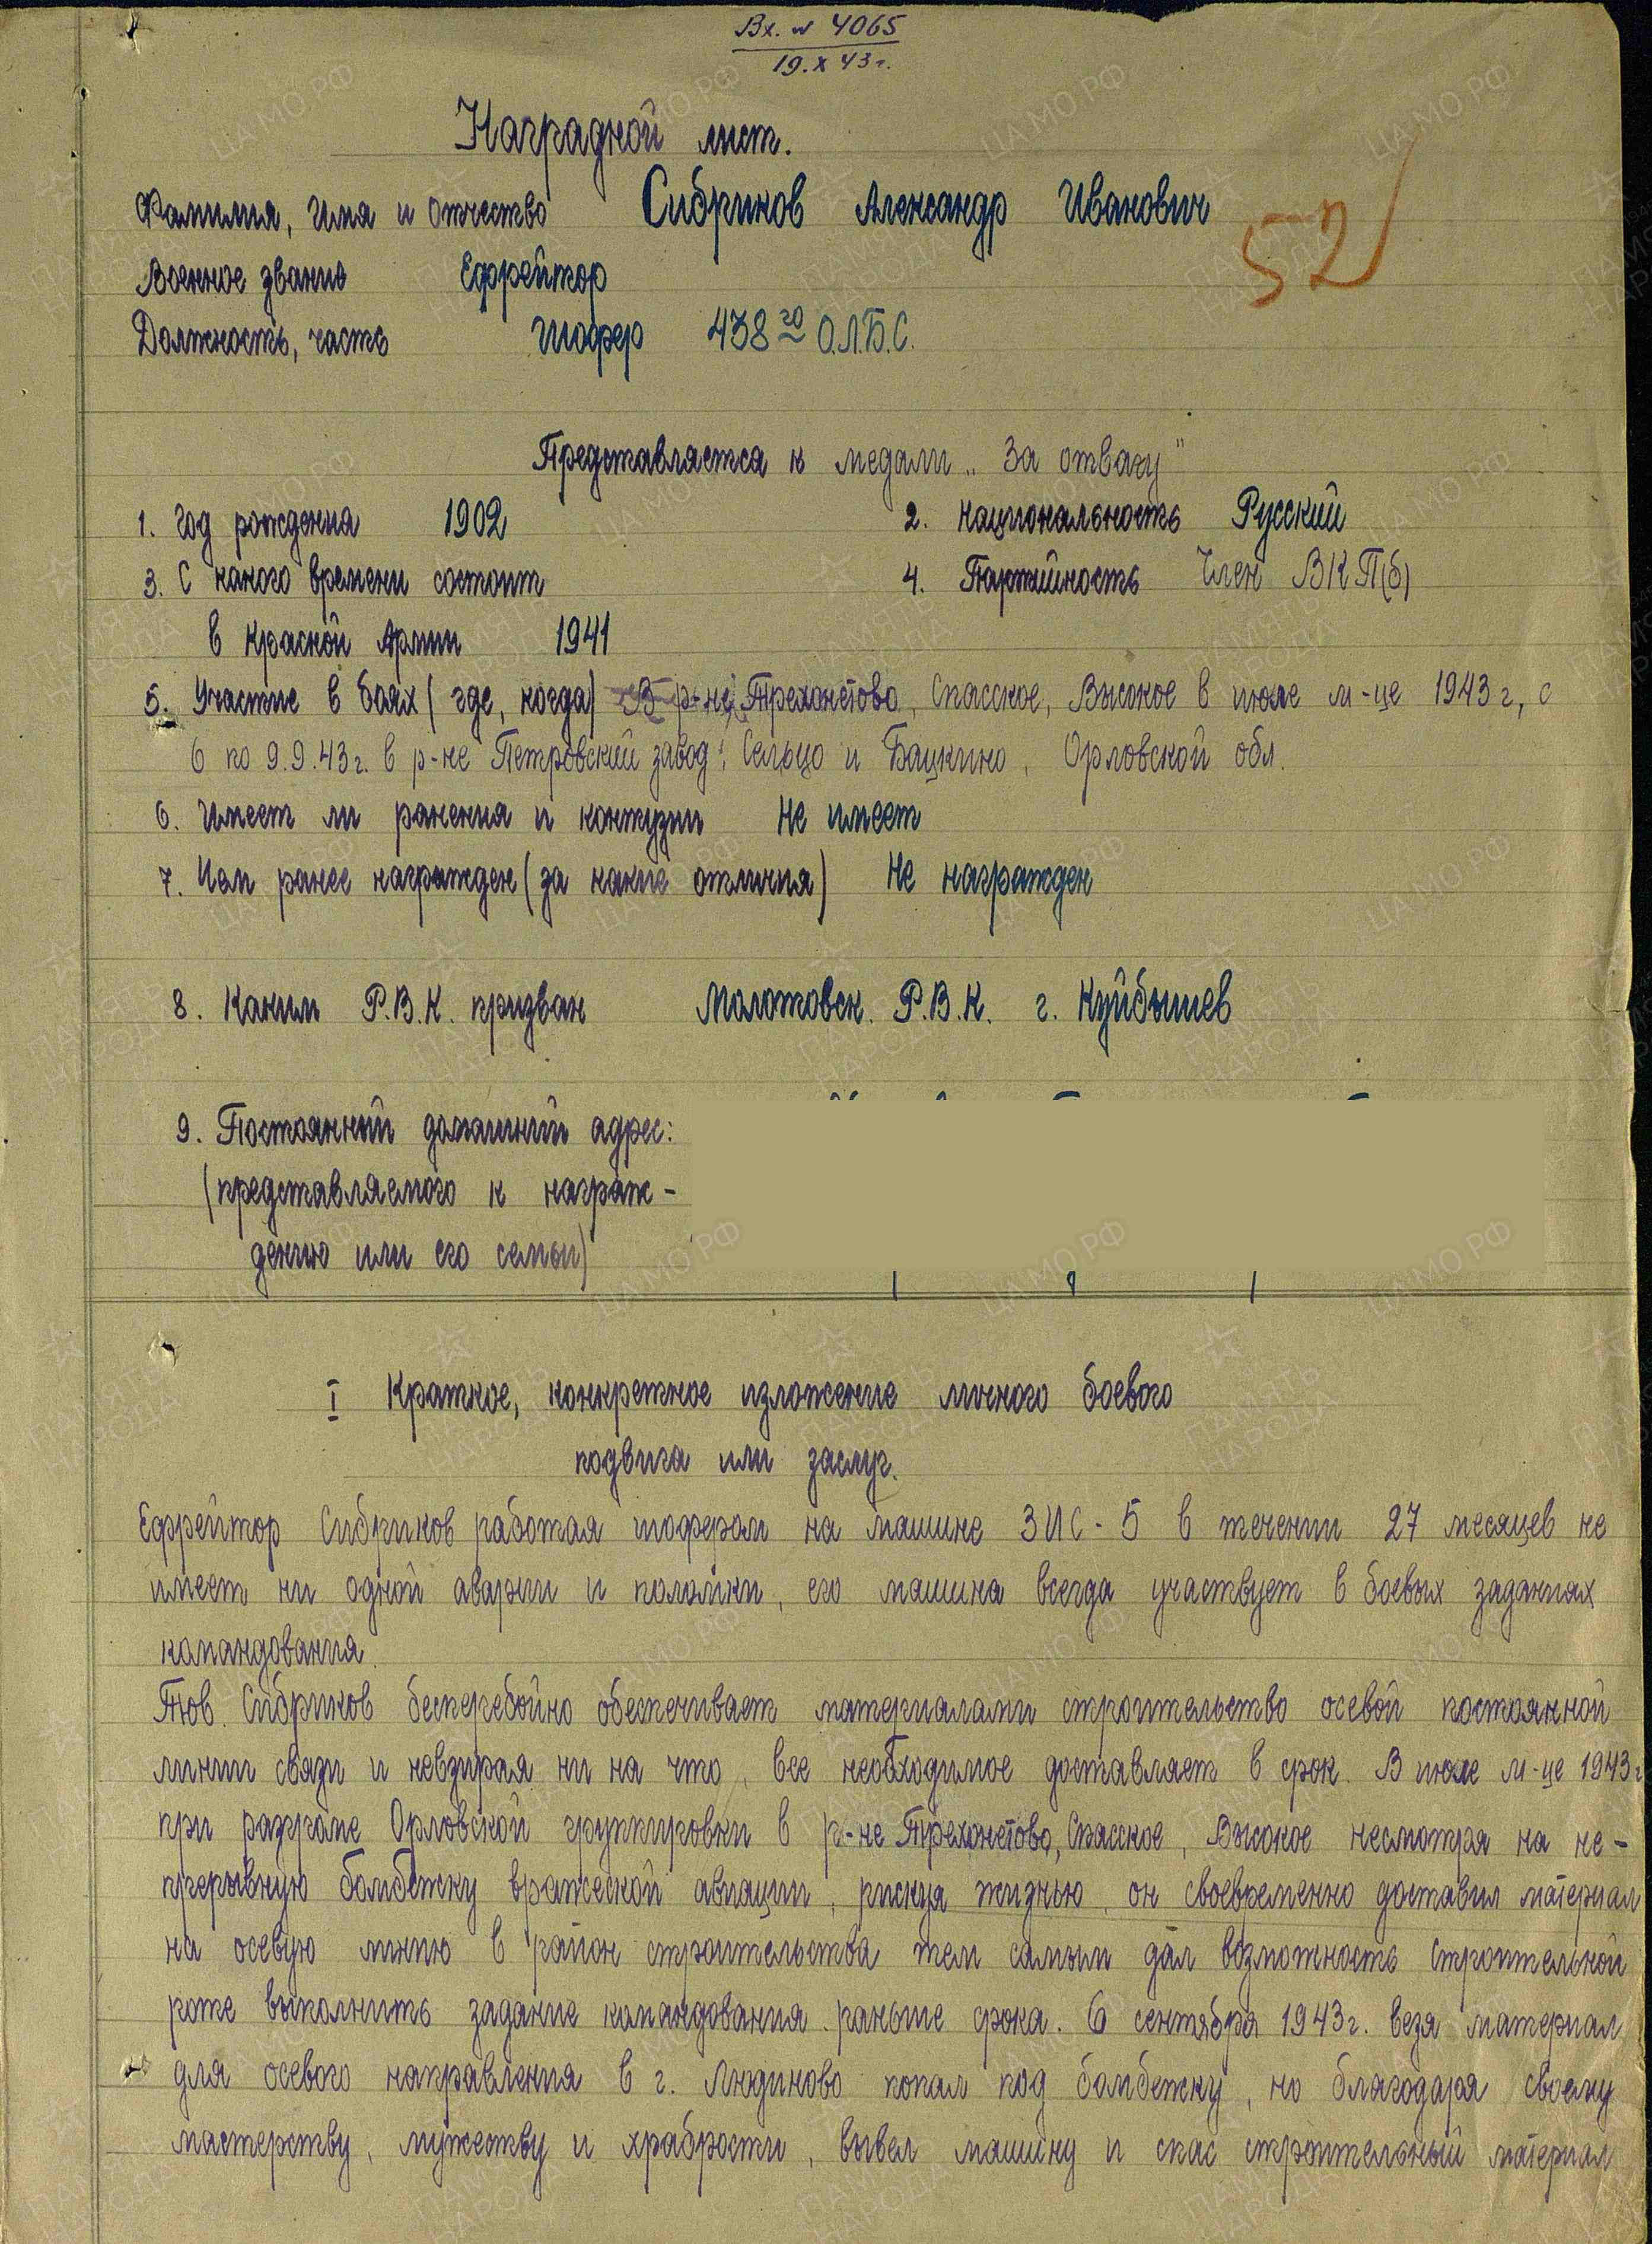 Вх. № 4065
19.X 43г.
Наградной лист.
Фамилия, Имя и Отчество Сибриков Александр Иванович
52
Военное звание Ефрейтор
Должность, часть Шофер 438го О.Л.Б.С.
Представляется к медали „За отвагу"
1. Год рождения 1902 2. Национальность Русский
3. С какого времени состоит 4. Партийность Член ВКП(б)
в Красной Армии 1941
5. Участие в боях (где, когда) В р-не Трехонетово, Спасское, Высокое в июле м-це 1943 г, с
6 по 9.9.43г. в р-не Петровский завод, Сельцо и Бацкино, Орловской обл.
6. Имеет ли ранения и контузии Не имеет
7. Чем ранее награжден (за какие отличия) Не награжден
8. Каким Р.В.К. призван Молотовск. Р.В.К. г. Куйбышев
9. Постоянный домашний адрес:
(представляемого к награж-
дению или его семьи)
I Краткое, конкретное изложение личного боевого
подвига или заслуг.
Ефрейтор Сибриков работая шофером на машине ЗИС-5 в течении 27 месяцев не
имеет ни одной аварии и поломки, его машина всегда участвует в боевых заданиях
командования.
Тов. Сибриков бесперебойно обеспечивает материалами строительство осевой постоянной
линии связи и невзирая ни на что, все необходимое доставляет в срок. В июле м-це 1943г
при разгроме Орловской группировки в р-не Трехонетово, Спасское, Высокое несмотря на не-
прерывную бомбежку вражеской авиации, рискуя жизнью, он своевременно доставил материал
на осевую линию в район строительства тем самым дал возможность строительной
роте выполнить задание командования раньше срока. 6 сентября 1943г. везя материал
для осевого направления в г. Людиново попал под бомбежку, но благодаря своему
мастерству, мужеству и храбрости, вывел машину и спас строительный материал